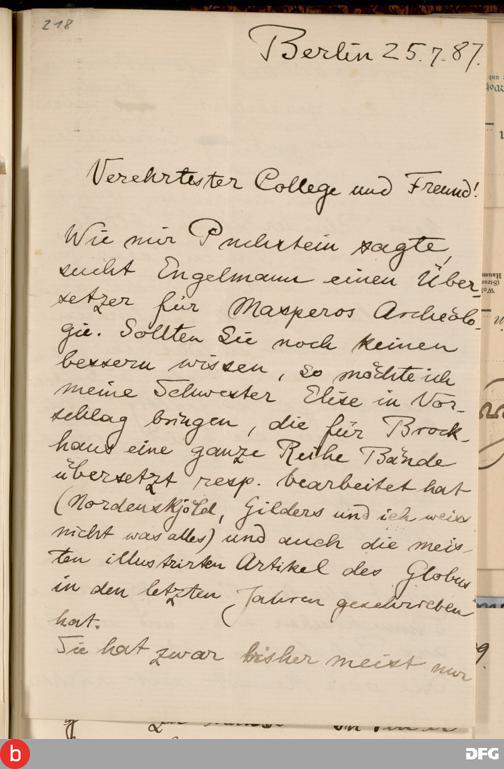 218
Berlin 25.7.87.
Verehrtester College und Freund!
Wie mir Puchstein sagte,
sucht Engelmann einen Über-
setzer für Masperos Archéolo-
gie. Sollten Sie noch keinen
bessern wissen, so möchte ich
meine Schwester Elise in Vor-
schlag bringen, die für Brock-
haus eine ganze Reihe Bände
übersetzt resp. bearbeitet hat
(Nordenskjöld, Gilders und ich weiss
nicht was alles) und auch die meis-
ten illustrirten Artikel des Globus
in den letzten Jahren geschrieben
hat.
Sie hat zwar bisher meist nur
b
DFG